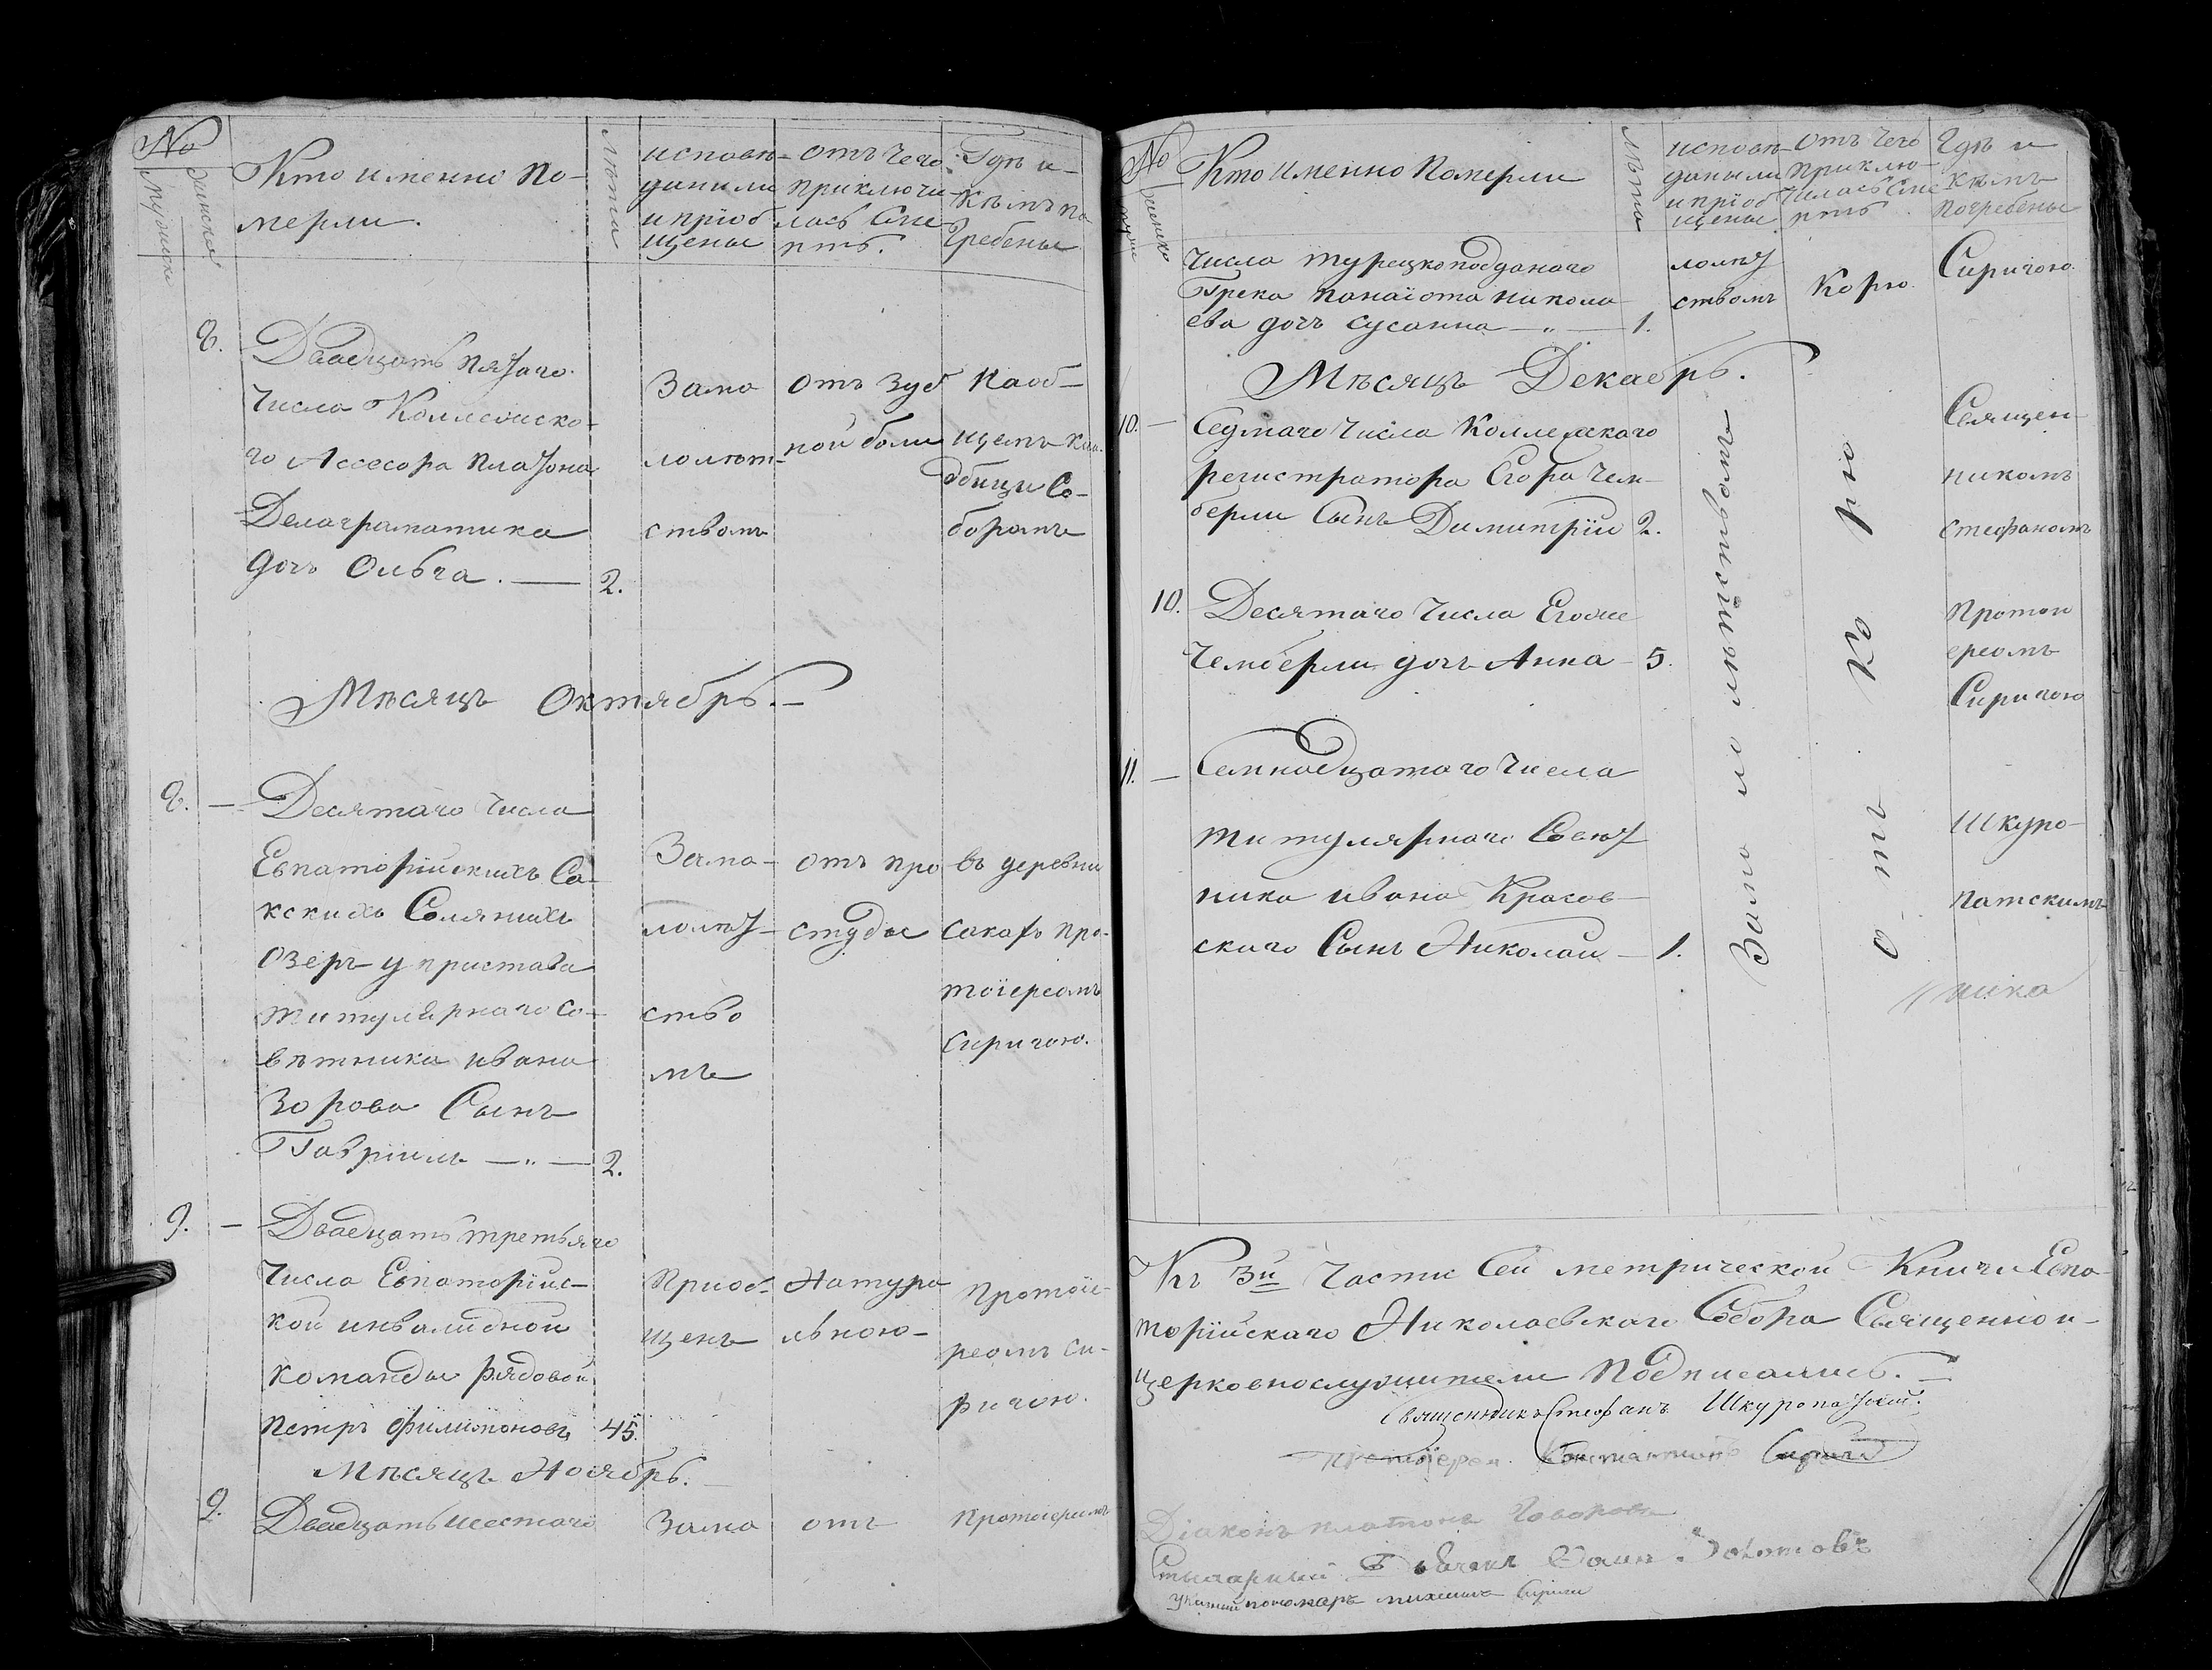 №
мужска
женска
Кто именно по-
мерли.
лѣта
исповѣ-
даны ли
и пріоб
щены
отъ чего
приключи-
лась сме
рть.
Гдѣ и
кѣмъ по-
гребены
8.
Двадцать пятаго
числа Коллежско-
го Ассесора Платона
Делаграматика
дочь Ольга. — 2.
Зама
лолѣт-
ствомъ
отъ зуб
ной боли
на об-
щемъ кла-
дбищи Со-
боромъ
Мѣсяцъ Октябрь.—
8. — Десятаго числа
Евпаторійскихъ Са-
кскихъ Соляныхъ
Озеръ у пристава
титулярнаго со-
вѣтника ивана
Зорова Сынъ
Гавріилъ — „ — 2.
Зама-
лолѣт-
ство
мъ
отъ про
студы
въ деревни
Сакахъ про-
тоіереомъ
Сиригою.
9. — Двадцать третьяго
числа Евпаторійс-
кой инвалидной
команды рядовой
Петръ Филимоновъ 45.
Приоб-
щенъ
Натура
льною-
Протоіе-
реомъ Си-
ригою.
Мѣсяцъ Ноябрь.—
9. Двадцать шестаго
Зама
отъ
Протоиереомъ
№
Кто именно Померли
лѣта
исповѣ-
даны ли
и пріоб
щены
отъ чего
приклю-
чилась сме
рть
Гдѣ и
кѣмъ
погребены
числа турецкоподданаго
Грека панаіота никола-
ева дочь сусанна — „ — 1.
лолѣт
ствомъ
корю
Сиригою.
Мѣсяцъ Декабрь.
10. — Седмаго числа Коллежскаго
регистратора Егора Чем-
берли Сынъ Димитрій 2.
10. Десятаго числа Егоже
Чемберли дочь Анна — 5.
11. — Семнадцатаго числа
титулярнаго Совѣт
ника ивана Красов-
скаго Сынъ Николай — 1.
Зама ло лѣтствомъ
о-тъ ко рю
Священ-
никомъ
стефаномъ
Протои
ереомъ
Сиригою
Шкуро-
патскимъ
Къ 3й Части Сей метрической Книги Евпа-
торійскаго Николаевскаго Собора Священно и-
церковнослужители Подписались.—
Священникъ Стефанъ Шкуропатскій.
Протоіерей Константинъ Сирига
Діаконъ платонъ Говоровъ
пономарь михаилъ